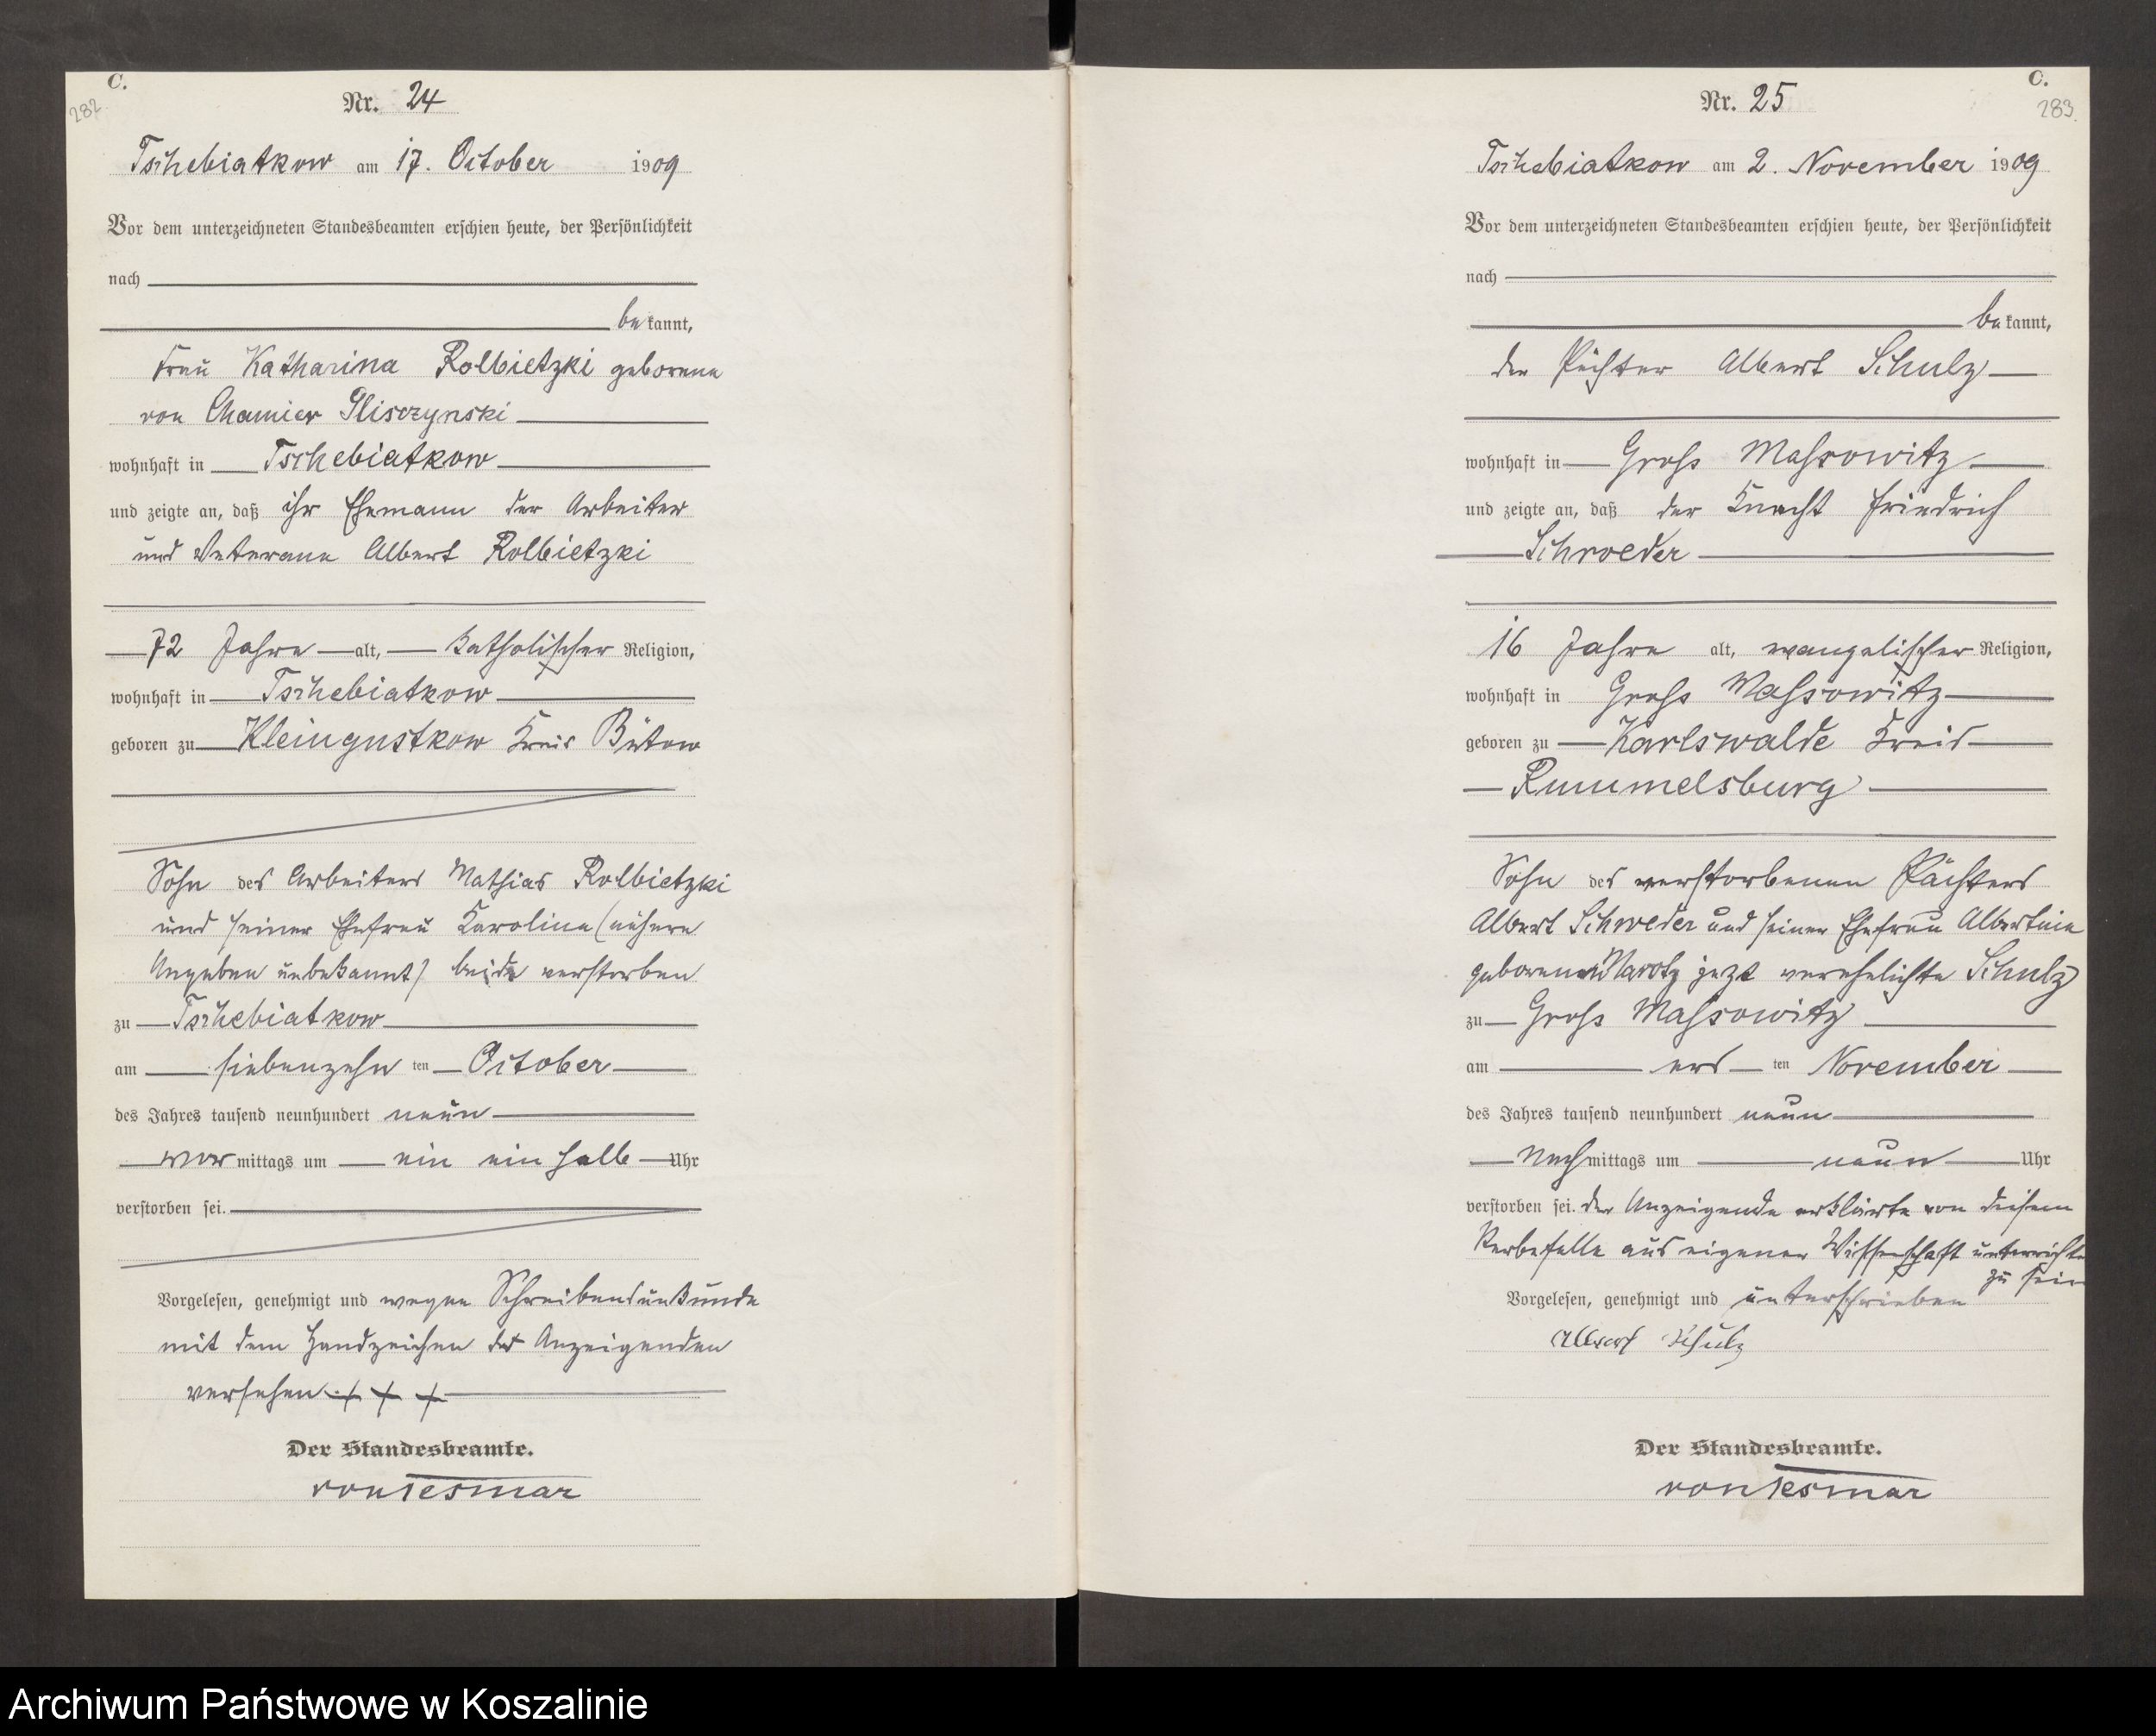 C.
282
Nr. 24
Tschebiatkow am 17. October 1909
Vor dem unterzeichneten Standesbeamten erschien heute, der Persönlichkeit
nach
be kannt,
Frau Katharina Rolbietzki geborene
von Chamier Gliszczynski
wohnhaft in Tschebiatkow
und zeigte an, daß ihr Ehemann der Arbeiter
und Veterane Albert Rolbietzki
72 Jahre alt, katholischer Religion,
wohnhaft in Tschebiatkow
geboren zu Kleingustkow Kreis Bütow
Sohn des Arbeiters Mathias Rolbietzki
und seiner Ehefrau Karoline (nähere
Angaben unbekannt) beide verstorben
zu Tschebiatkow
am siebenzehn ten October
des Jahres tausend neunhundert neun
vor mittags um ein ein halb Uhr
verstorben sei.
Vorgelesen, genehmigt und wegen Schreibensunkunde
mit dem Handzeichen der Anzeigenden
versehen + + +
Der Standesbeamte.
von Tesmar
C.
283
Nr. 25
Tschebiatkow am 2. November 1909
Vor dem unterzeichneten Standesbeamten erschien heute, der Persönlichkeit
nach
be kannt,
der Pächter Albert Schulz
wohnhaft in Gross Massowitz
und zeigte an, daß der Knecht Friedrich
Schroeder
16 Jahre alt, evangelischer Religion,
wohnhaft in Gross Massowitz
geboren zu Karlswalde Kreis
Rummelsburg
Sohn des verstorbenen Pächters
Albert Schroeder und seiner Ehefrau Albertine
geborenen jezt verehelichte Schulz
zu Gross Massowitz
am ers ten November
des Jahres tausend neunhundert neun
Nach mittags um neun Uhr
verstorben sei. Der Anzeigende erklärte von diesem
Sterbefalle aus eigener Wissenschaft unterrichtet
zu sein
Vorgelesen, genehmigt und unterschrieben
Albert Schulz
Der Standesbeamte.
von Tesmar
Archiwum Państwowe w Koszalinie